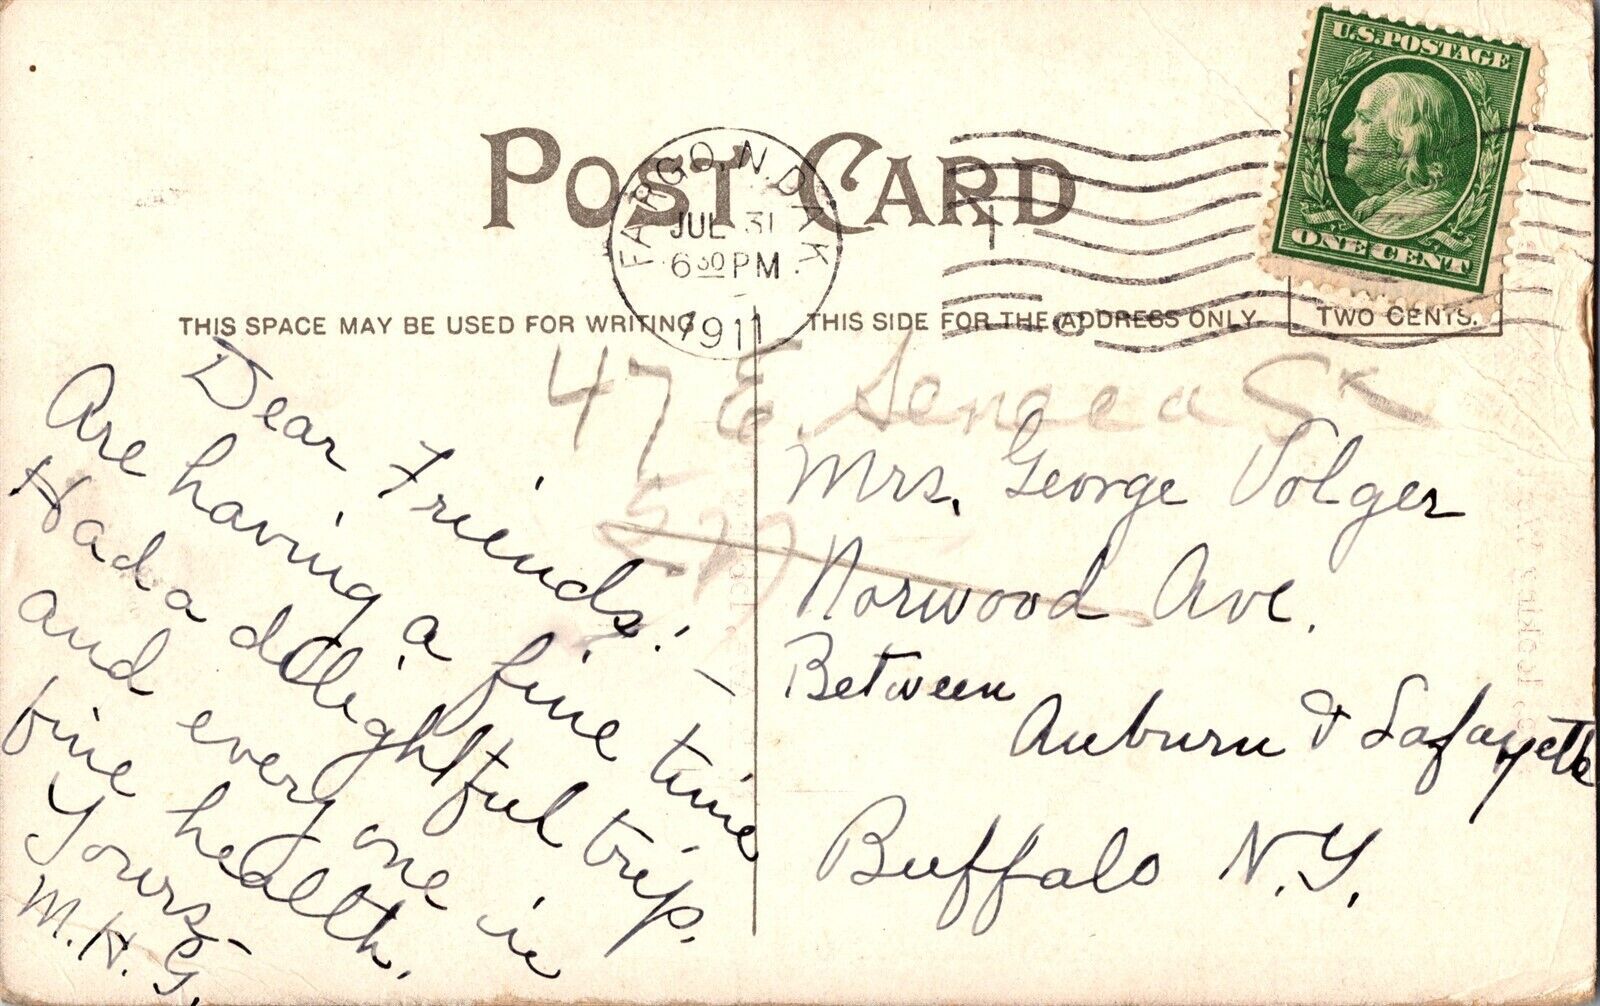 U.S. POSTAGE
ONE CENT
POST CARD
FARGO, N. DAK.
JUL 31
6 30 PM
1911
THIS SPACE MAY BE USED FOR WRITING
THIS SIDE FOR THE ADDRESS ONLY.
TWO CENTS.
47 E Seneca
577
Dear Friends:—
Are having a fine time
Had a delightful trip.
and every one in
fine health.
Yours,
M. H. G.
Mrs. George Volger
Norwood Ave.
Between
Auburn & Lafayette
Buffalo N.Y.